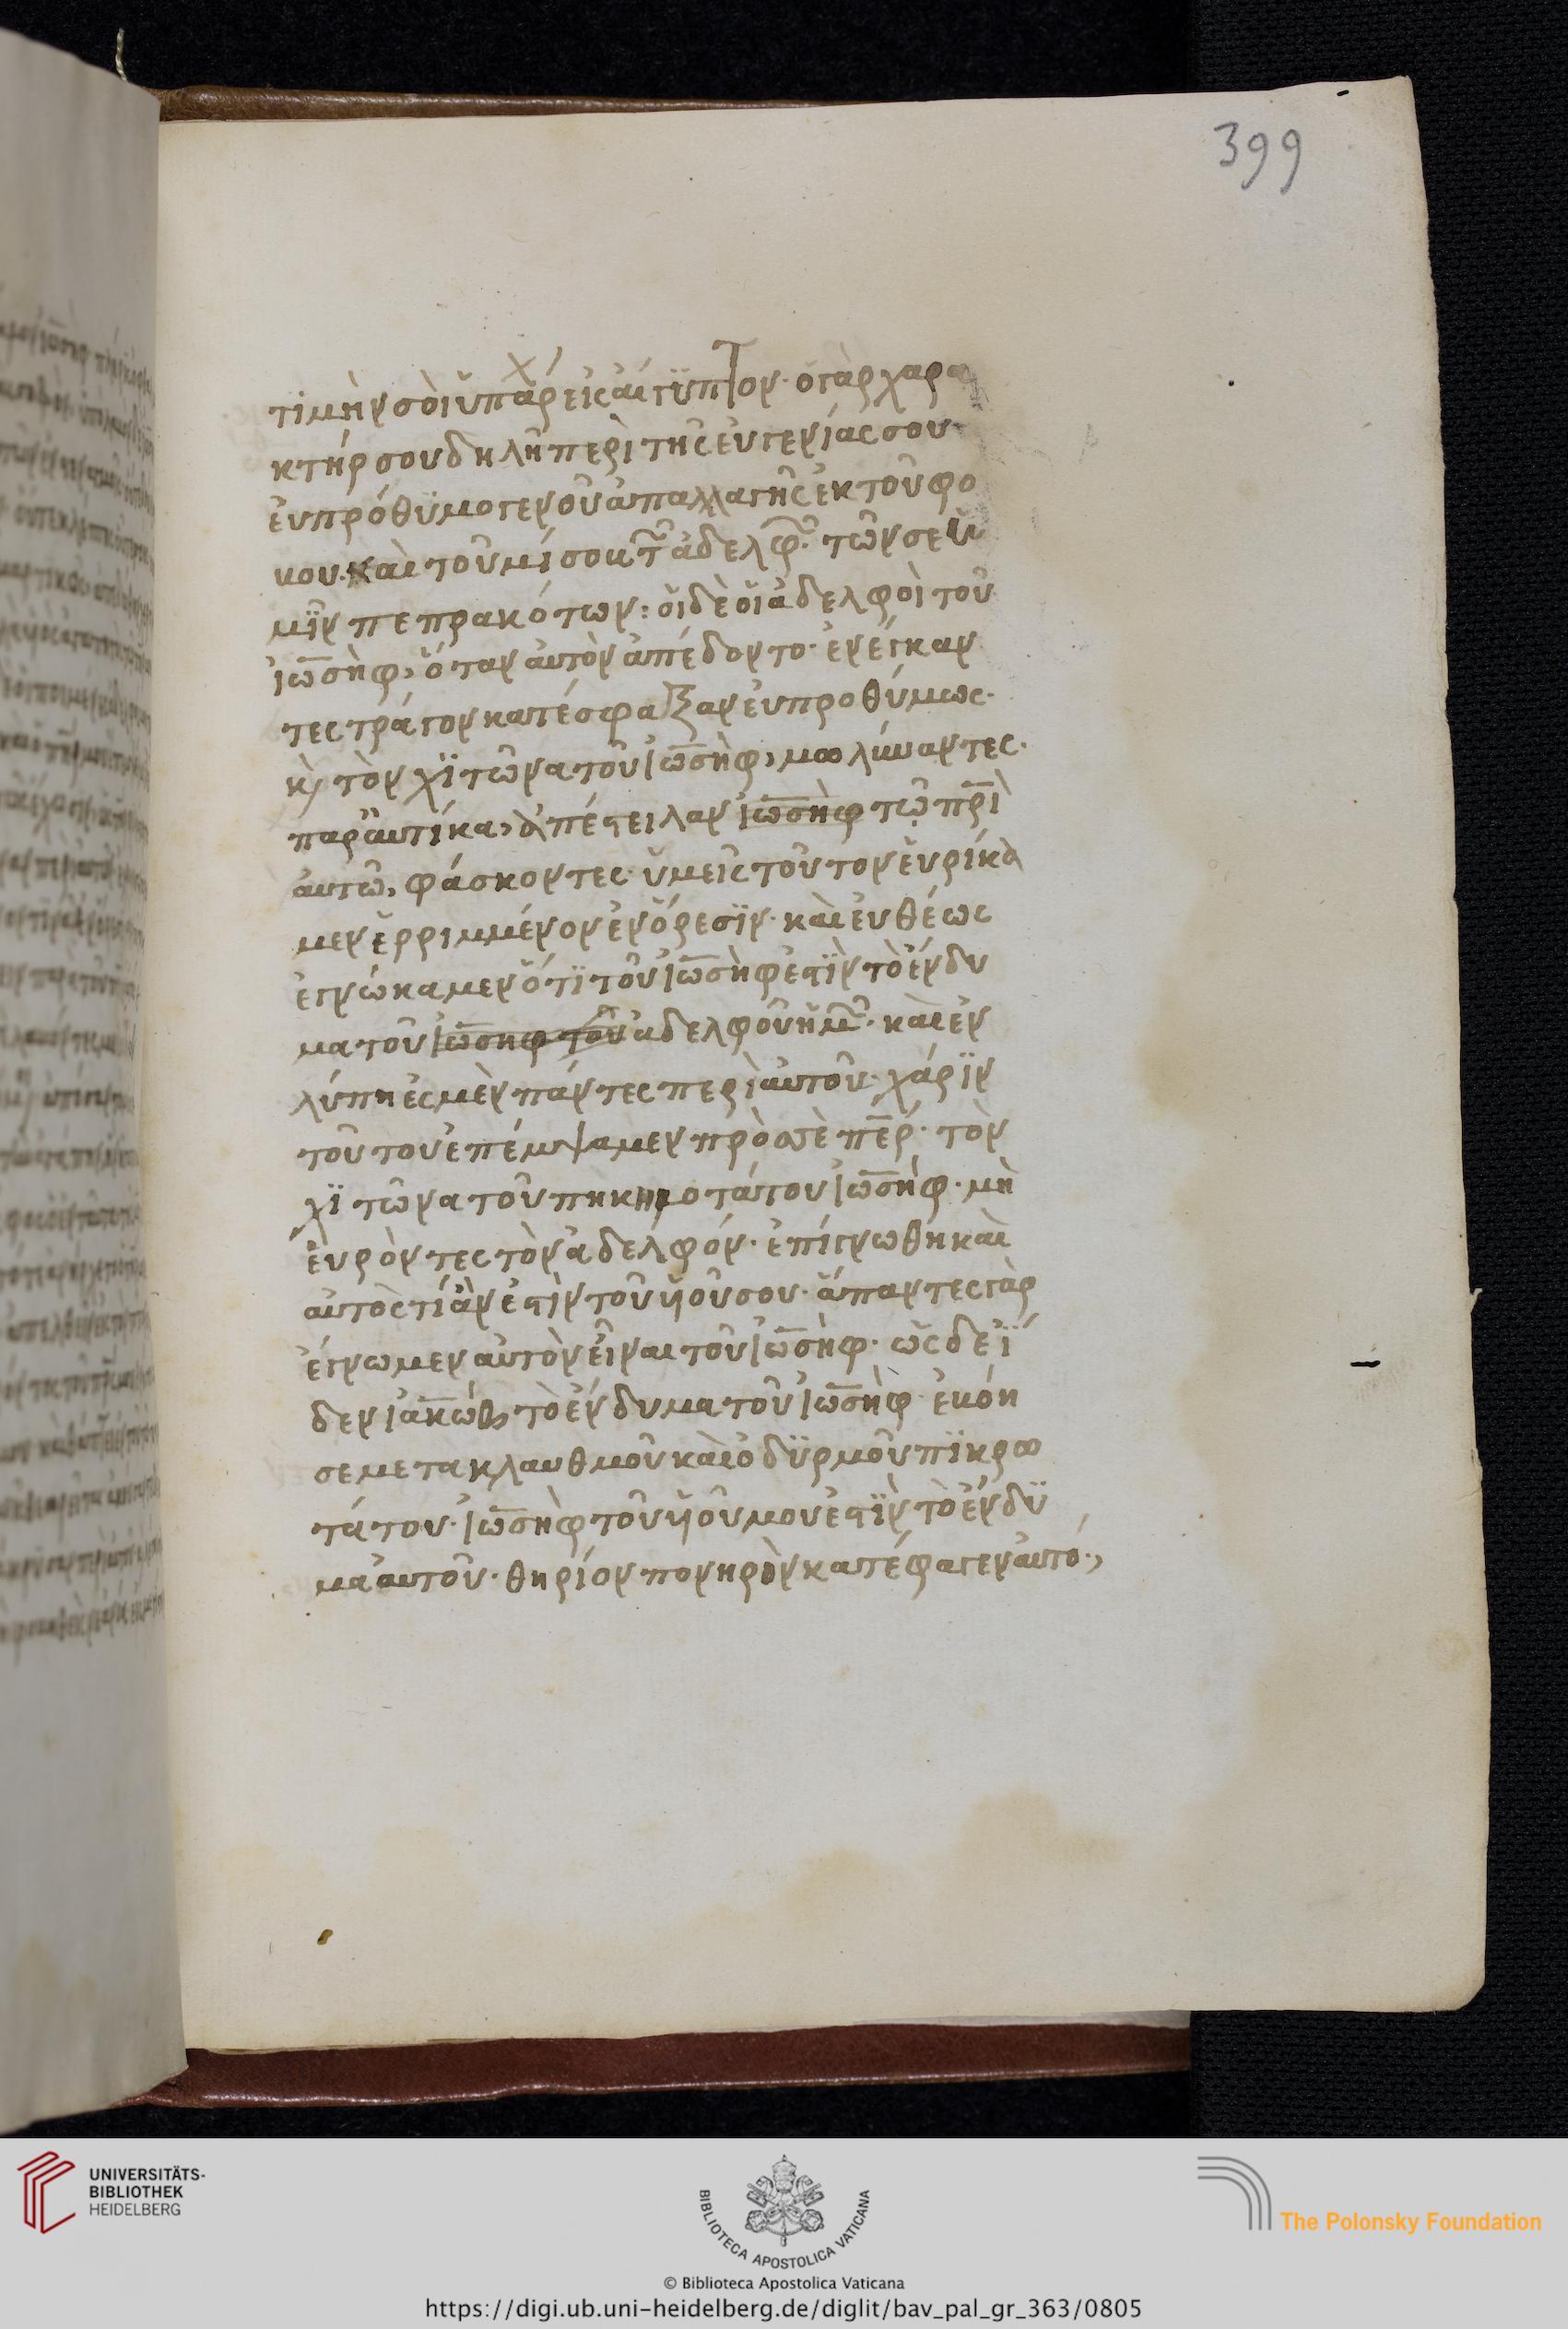 399
τιμὴν σοὶ ὑπάρχ εἰς αἴγϋπτον· ὁ γὰρ χαρα
κτήρ σου δηλῆ περὶ τῆς εὐγενίας σου·
εὐπρόθϋμο γενοῦ ἀπαλλαγῆς ἐκ τοῦ φο
κου· καὶ τοῦ μίσου κτ ἀδελφ· τῶν σε
μῖν πεπρακότων: οἱ δὲ οἱ ἀδελφοὶ τοῦ
ἰωσὴφ, ὅταν αὐτὸν ἀπέδοντο· ἐνέγκαν
τες τράγον κατέσφαξαν εὐπροθύμως·
κ τὸν χϊτῶνα τοῦ ἰωσὴφ, μωλύναντες·
παραυτίκα, ἀπέστειλαν ἰωσὴφ τῷ πρὶ
αὐτῶ, φάσκοντες· ὑμεῖς τοῦτον εὑρίκα
μεν ἐρριμμένον ἐν ὄρεσϊν· καὶ εὐθέως
ἐγνώκαμεν ὅτϊ τοῦ ἰωσὴφ ἐστϊν τὸ ἔνδυ
μα τοῦ ἰωσηφ τοῦ ἀδελφοῦ ἡμ· καὶ ἐν
λύπη ἐσμὲν πάντες περὶ αὐτοῦ· χάρϊν
τοῦτου ἐπέμψαμεν πρὸ σὲ περ· τὸν
χϊτῶνα τοῦ πηκροτάτου ἰωσήφ· μὴ
εὑρὸντες τὸν ἀδελφόν· ἐπίγνωθη καὶ
αὐτὸς τί ἂν ἐστὶν τοῦ ὑοῦ σου· ἅπαντες γὰρ
ἔγνωμεν αὐτὸν εἶναι τοῦ ἰωσὴφ· ὡς δε ἴ
δεν ἰακώβ, τὸ ἔνδυμα τοῦ ἰωσὴφ· ἐκόη
σε μετα κλαυθμοῦ καὶ ὀδϋρμοῦ πϊκρω
τάτου· ἰωσὴφ τοῦ ὑοῦ μου ἐστϊν τὸ ἔνδϋ
μα αὐτοῦ· θηρίον πονηρὸν κατέφαγεν αὐτό·,
UNIVERSITÄTS-
BIBLIOTHEK
HEIDELBERG
BIBLIOTECA APOSTOLICA VATICANA
The Polonsky Foundation
© Biblioteca Apostolica Vaticana
https://digi.ub.uni-heidelberg.de/diglit/bav_pal_gr_363/0805